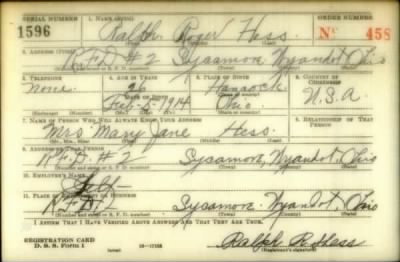 SERIAL NUMBER 1. NAME (Print) ORDER NUMBER
1596 Ralph Roger Hess No 458
2. ADDRESS (Print)
R.F.D #2 Sycamore, Wyandot, Ohio
3. TELEPHONE 4. AGE IN YEARS 5. PLACE OF BIRTH 6. COUNTRY OF CITIZENSHIP
None 26 Hancock U.S.A
DATE OF BIRTH
Feb-5-1914 Ohio
7. NAME OF PERSON WHO WILL ALWAYS KNOW YOUR ADDRESS 8. RELATIONSHIP OF THAT PERSON
Mrs Mary Jane Hess
9. ADDRESS OF THAT PERSON
R.F.D. #2 Sycamore, Wyandot, Ohio
10. EMPLOYER'S NAME
11. PLACE OF EMPLOYMENT OR BUSINESS
Sycamore Wyandot, Ohio
I AFFIRM THAT I HAVE VERIFIED ABOVE ANSWERS AND THAT THEY ARE TRUE.
REGISTRATION CARD
D. S. S. Form 1 Ralph R. Hess
(Registrant's signature)